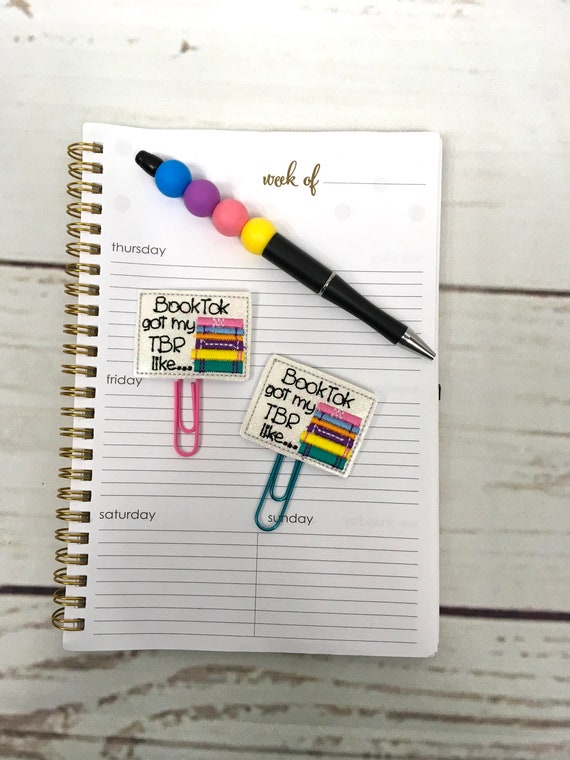 week of
thursday
BookTok
got my
TBR
like...
friday
BookTok
got my
TBR
like...
saturday
sunday